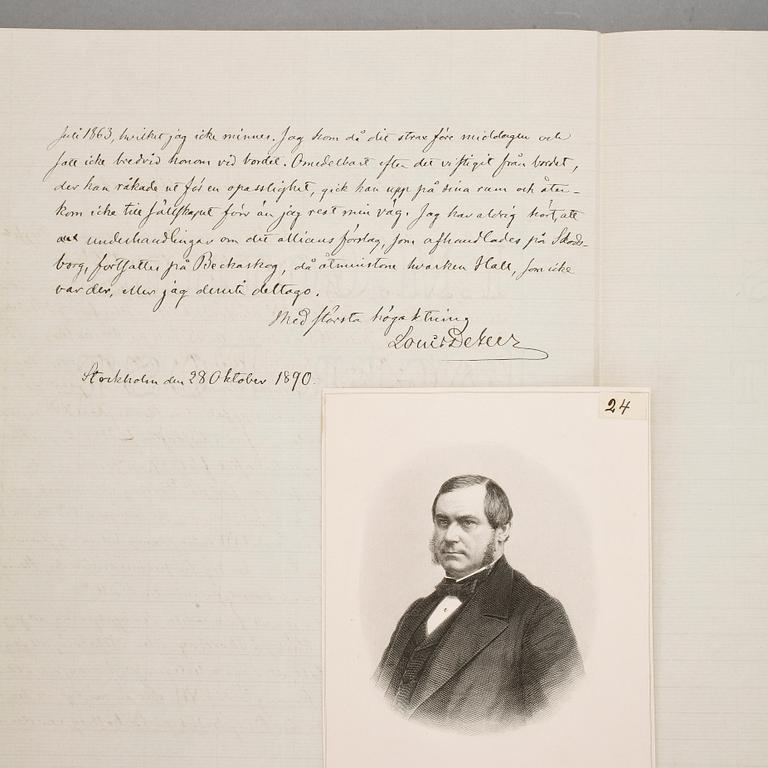 Juli 1863, hvilket jag icke minnes. Jag kom då dit strax före middagen och
satt icke bredvid honom vid bordet. Omedelbart efter det vi stigit från bordet,
der han råkade ut för en opasslighet, gick han upp på sina rum och åter-
kom icke till sällskapet förr än jag rest min väg. Jag har aldrig hört, att
underhandlingar om det allians förslag, som afhandlades på Skods-
borg, fortsattes på Beckaskog, då åtminstone hvarken Hall, som icke
var der, eller jag deruti deltago.
Med största högaktning
Louis De Geer
Stockholm den 28 Oktober 1890.
24